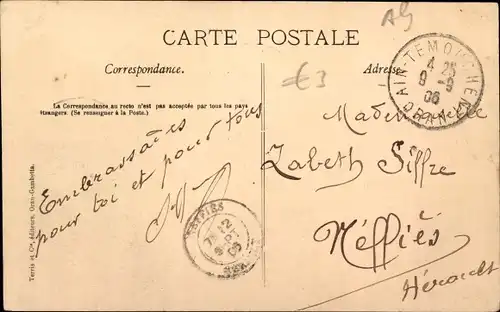 Alg
CARTE POSTALE
Correspondance.
Adresse
€3
La Correspondance au recto n'est pas acceptée par tous les pays
étrangers. (Se renseigner à la Poste.)
AIN-TEMOUCHENT
4 25
9 -9
06
ORAN
Embrassades
pour toi et pour tous
Mademoiselle
Zabeth Siffre
Néffiès
Hérault
NEFFIES
HERAULT
Terris et Cie, éditeurs, Oran-Gambetta.